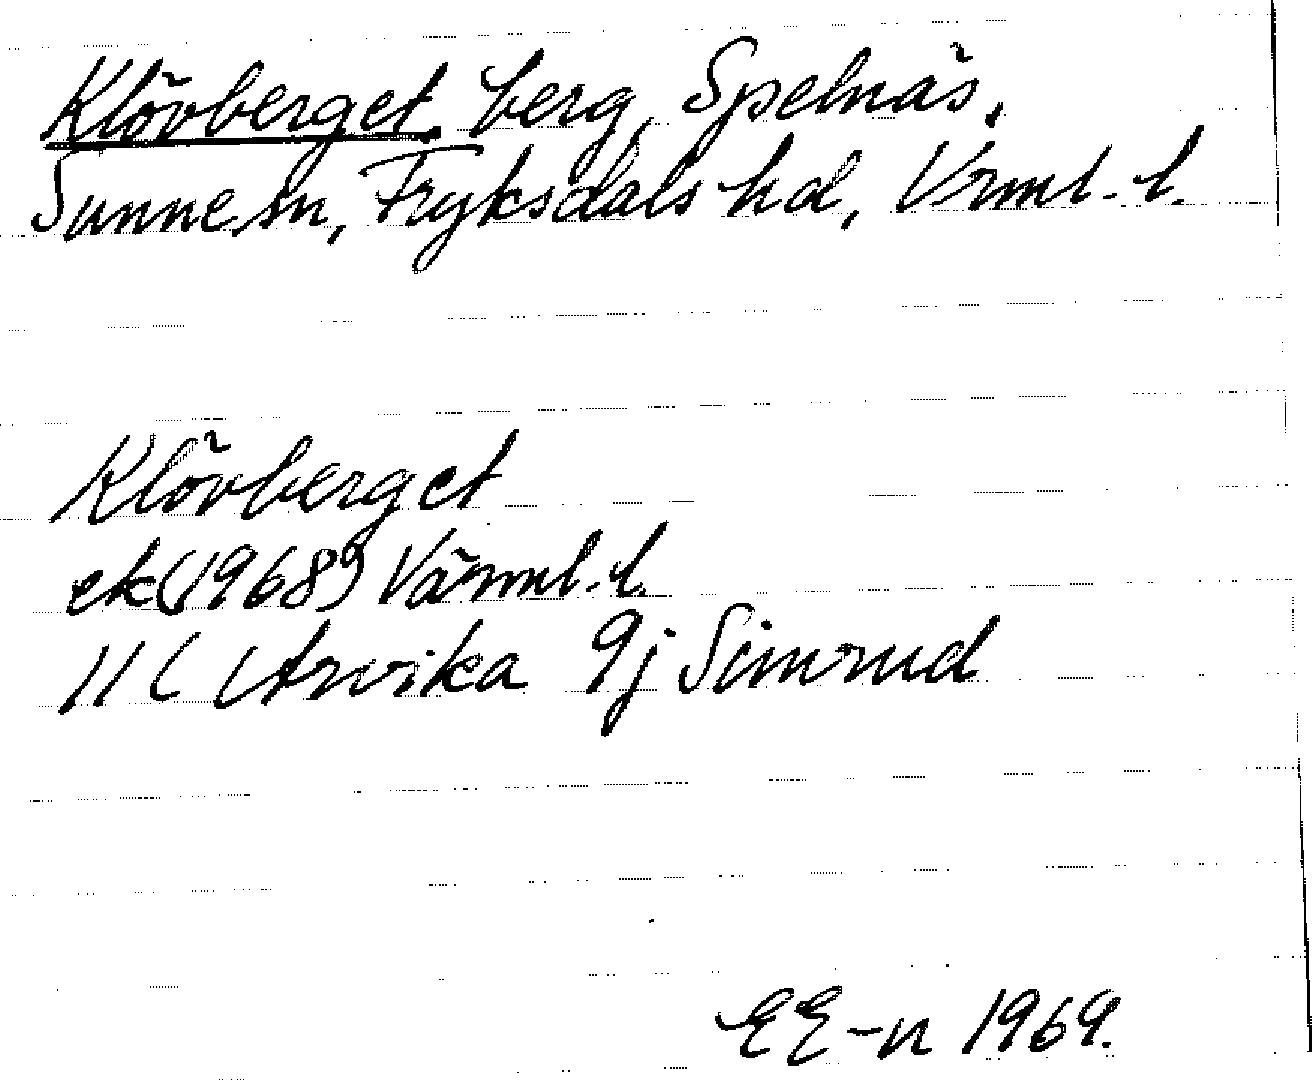 Klövberget, berg, Spelnäs,
Sunne sn, Fryksdals hd, Vrml. l.
Klövberget
ek (1968) Värml. l.
11C Arvika 9j Simrud
EE-n 1969.